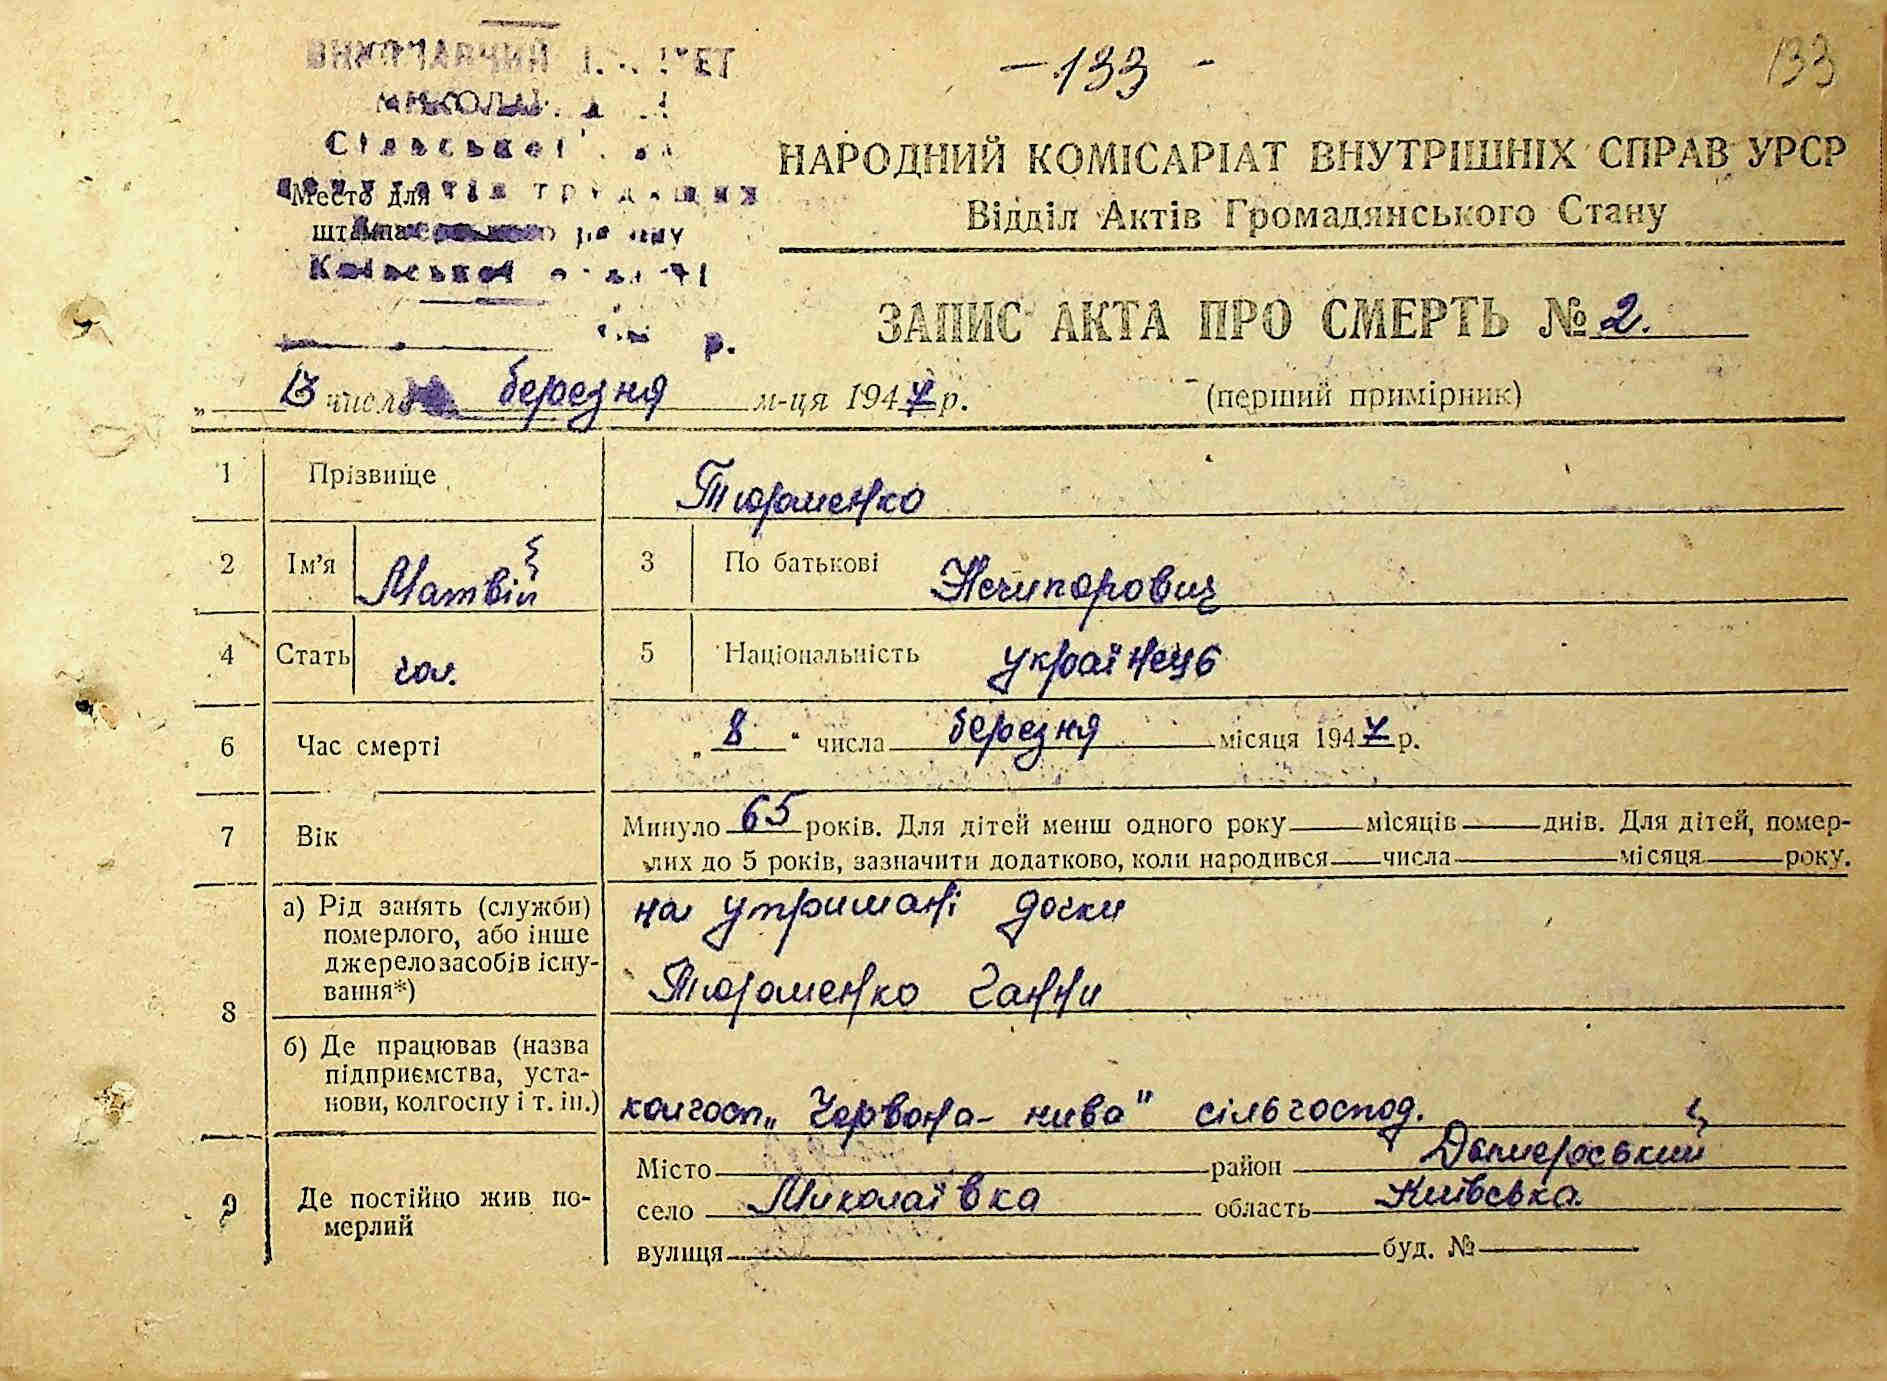 - 133 -
133
Сільської
Место для
штампа
Київської
р.
НАРОДНИЙ КОМІСАРІАТ ВНУТРІШНІХ СПРАВ УРСР
Відділ Актів Громадянського Стану
ЗАПИС АКТА ПРО СМЕРТЬ № 2.
„ 13 число березня м-ця 1947 р. (перший примірник)
1 Прізвище Тюрменко
2 Ім'я Матвій 3 По батькові Нечипорович
4 Стать чол. 5 Національність українець
6 Час смерті „ 8 “ числа березня місяця 1947 р.
7 Вік Минуло 65 років. Для дітей менш одного року місяців днів. Для дітей, помер-
лих до 5 років, зазначити додатково, коли народився числа місяця року.
8 а) Рід занять (служби) померлого, або інше джерело засобів існу-
вання*) на утримані дочки
Тюрменко Ганни
б) Де працював (назва підприємства, уста-
нови, колгоспу і т. ін.) колгосп „Червона-нива" сільгоспод.
9 Де постійно жив по-
мерлий Місто район Димерський
село Миколаївка область Київська
вулиця буд. №